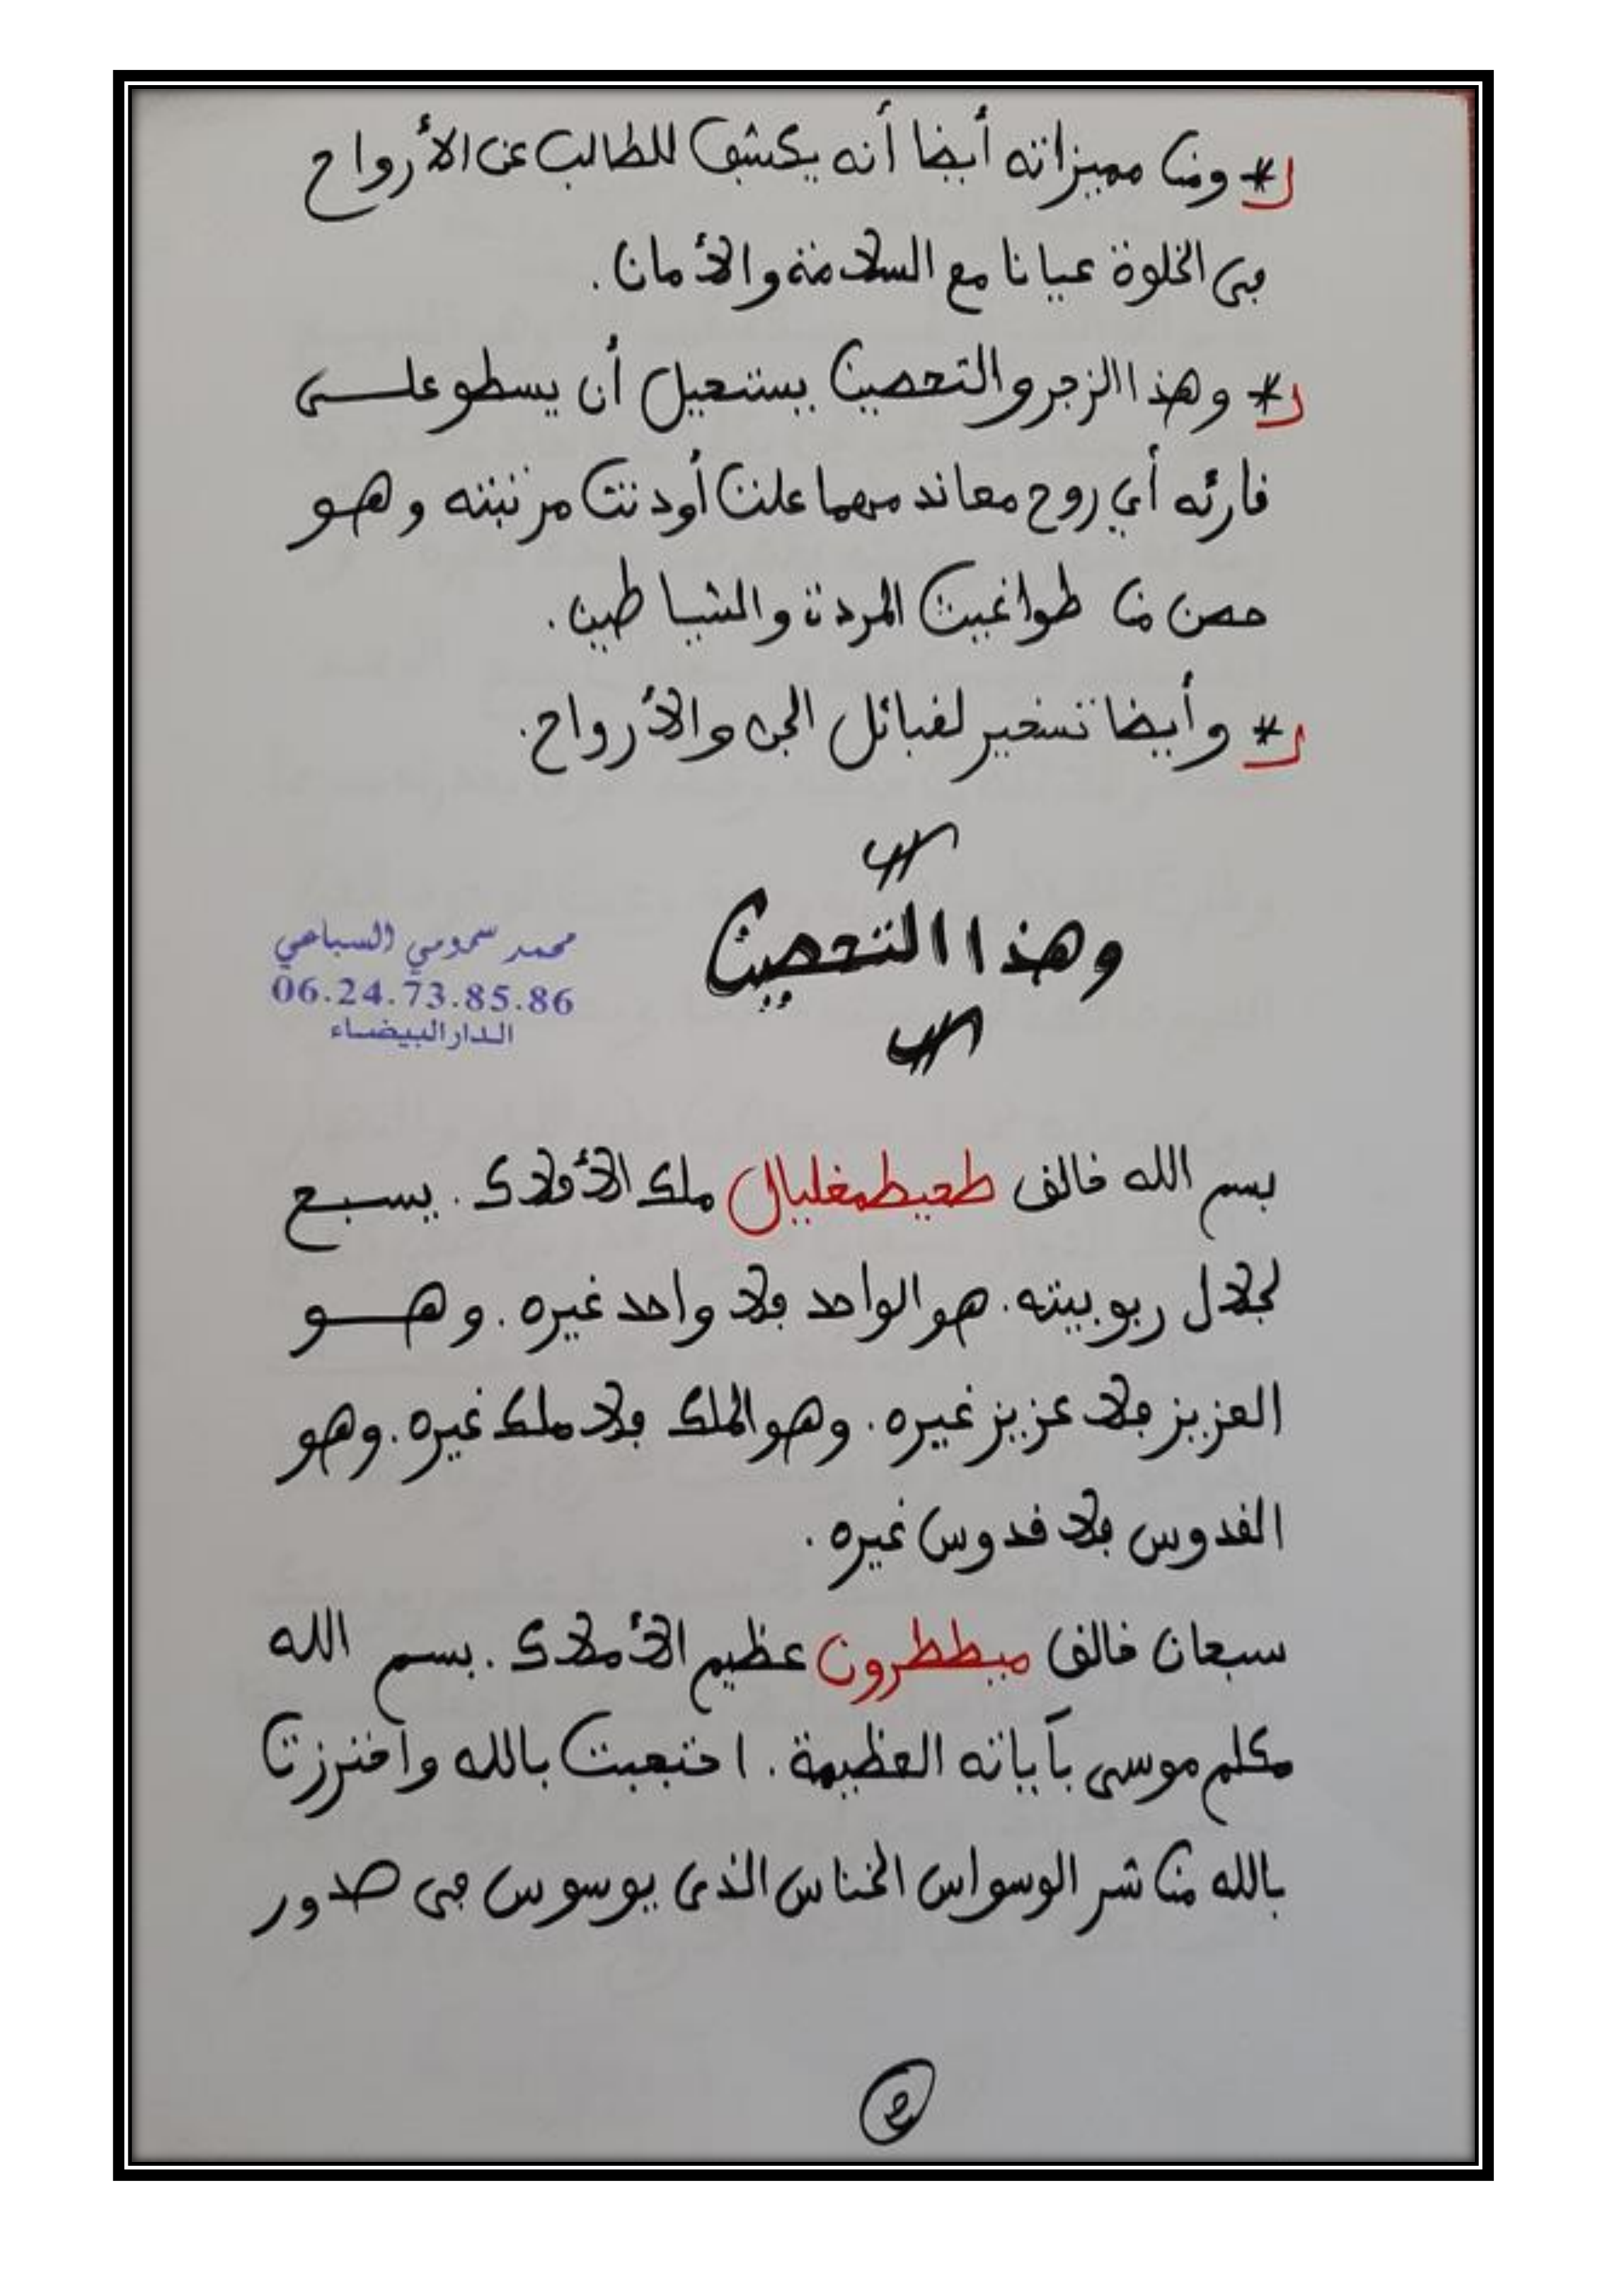 * ومن مميزاته أيضا أنه يكشف للطالب عن الأرواح
في الخلوة عيانا مع السلامة والأمان.
* وهذا الزجر والتحصين يستحيل أن يسطو على
قارئه أي روح معاند مهما علت أو دنت مرتبته وهو
حصن من طواغيت المردة والشياطين.
* وأيضا تسخير لقبائل الجن والأرواح.
وهذا التحصين
محمد سمومي السباعي
06.24.73.85.86
الدار البيضاء
بسم الله خالق طحيطمغليال ملك الأفلاك. يسبح
لجلال ربوبيته. هو الواحد فلا واحد غيره. وهو
العزيز فلا عزيز غيره. وهو الملك فلا ملك غيره. وهو
القدوس فلا قدوس غيره.
سبحان خالق ميططرون عظيم الأملاك. بسم الله
مكلم موسى بآياته العظيمة. احتجبت بالله واحترزت
بالله من شر الوسواس الخناس الذى يوسوس في صدور
2